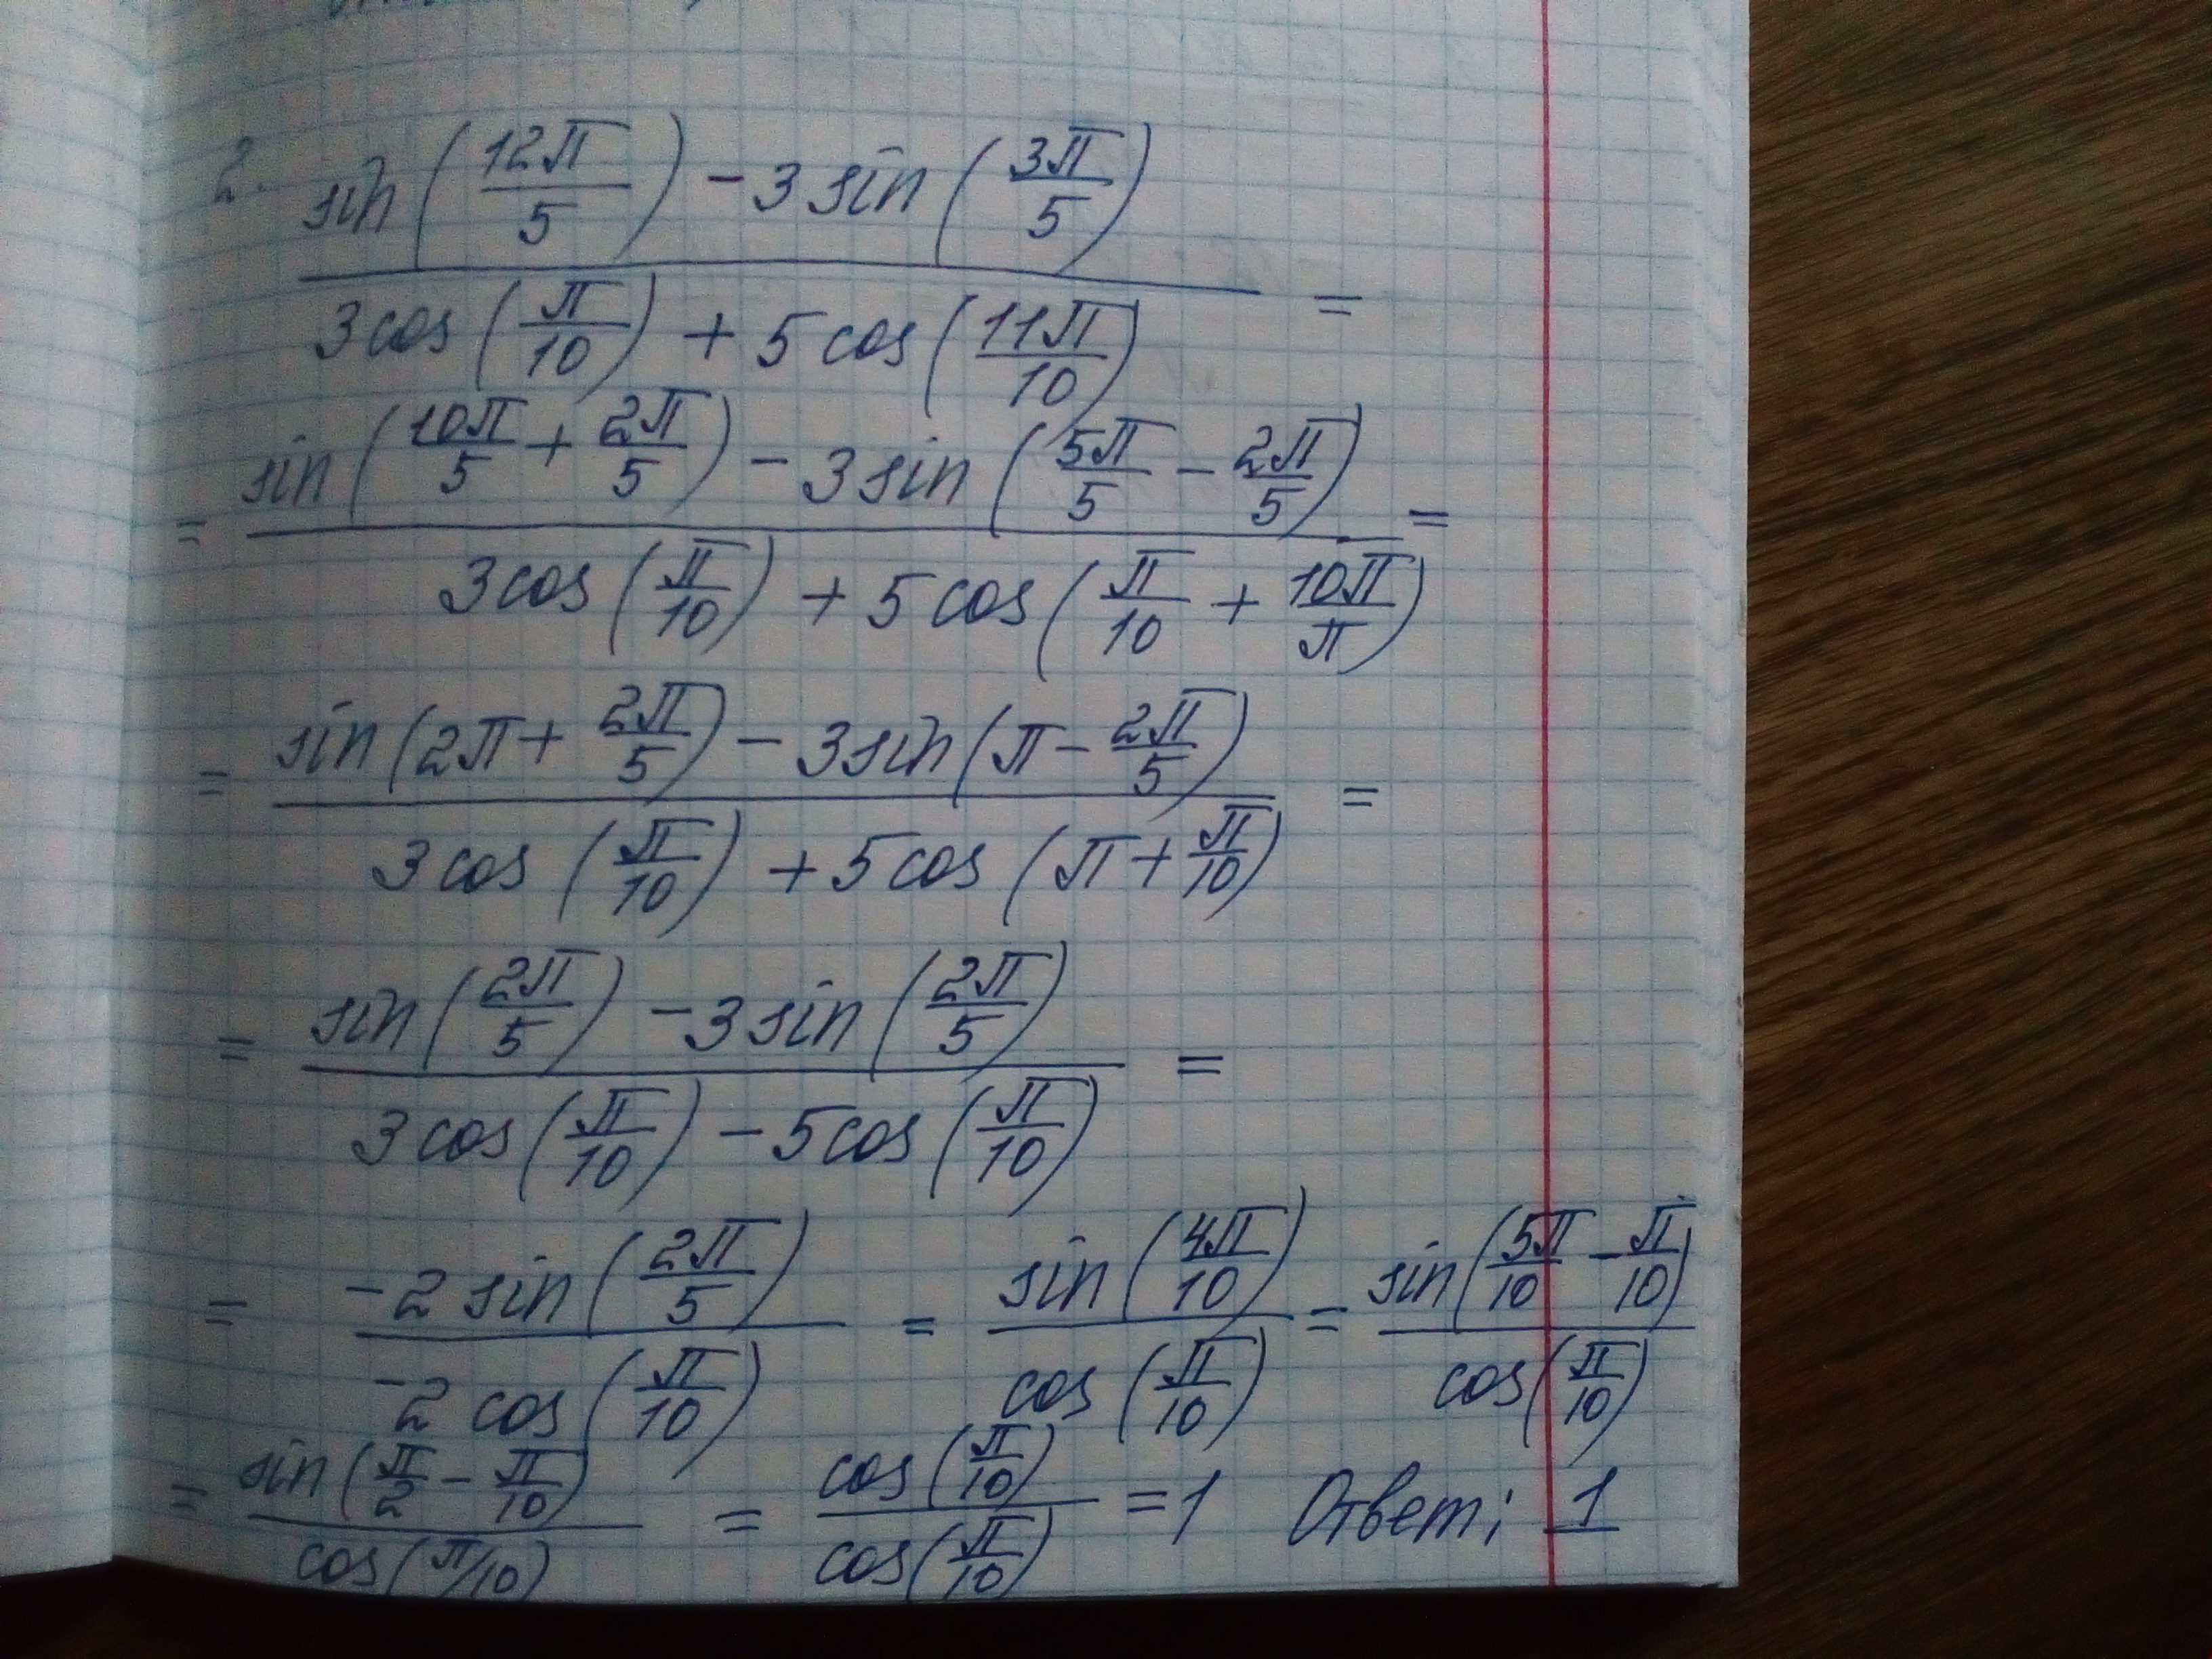 2. sin(12π/5) - 3 sin(3π/5)
3 cos(π/10) + 5 cos(11π/10) =
= sin(10π/5 + 2π/5) - 3 sin(5π/5 - 2π/5) =
3 cos(π/10) + 5 cos(π/10 + 10π/π)
= sin(2π + 2π/5) - 3 sin(π - 2π/5) =
3 cos(π/10) + 5 cos(π + π/10)
= sin(2π/5) - 3 sin(2π/5) =
3 cos(π/10) - 5 cos(π/10)
= -2 sin(2π/5) = sin(4π/10) = sin(5π/10 - π/10)
-2 cos(π/10) cos(π/10) cos(π/10)
= sin(π/2 - π/10) = cos(π/10) = 1 Ответ: 1
cos(π/10) cos(π/10)